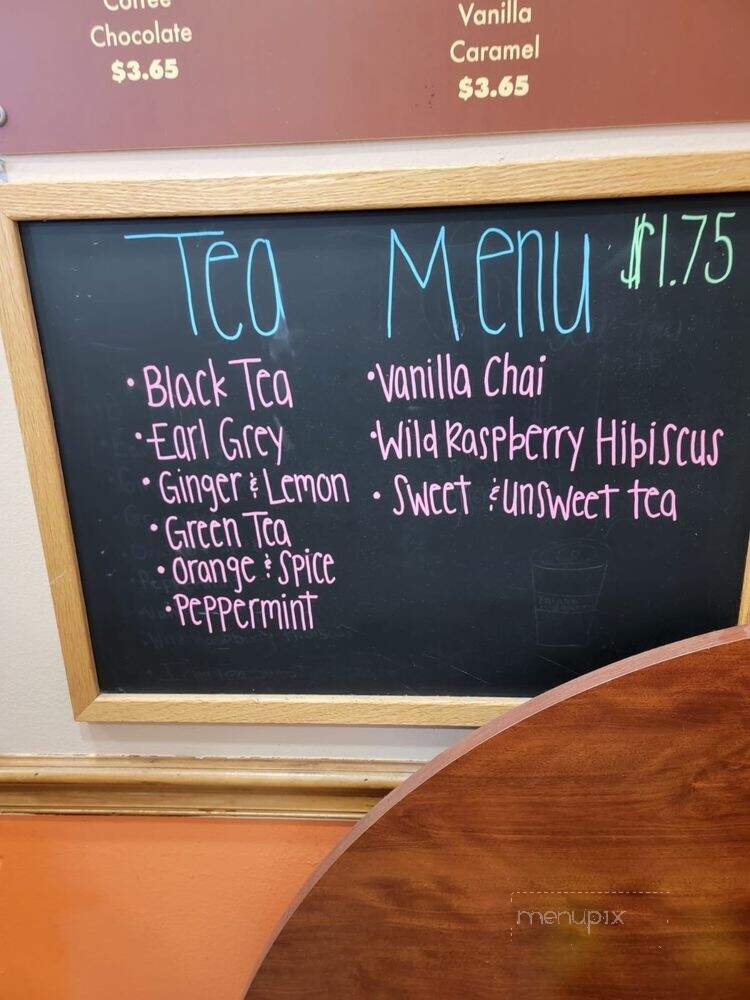 Coffee
Chocolate
$3.65
Vanilla
Caramel
$3.65
Tea Menu $1.75
• Black Tea
• Earl Grey
• Ginger & Lemon
• Green Tea
• Orange & Spice
• Peppermint
• Vanilla Chai
• Wild Raspberry Hibiscus
• Sweet & unsweet tea
menupix